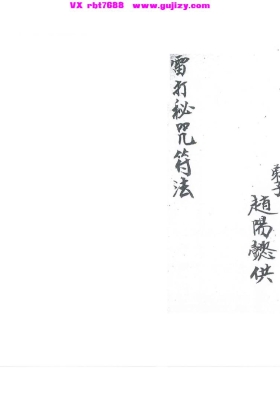 VX rbt7688 www.gujizy.com
弟子
趙陽懿供
雷打秘咒符法